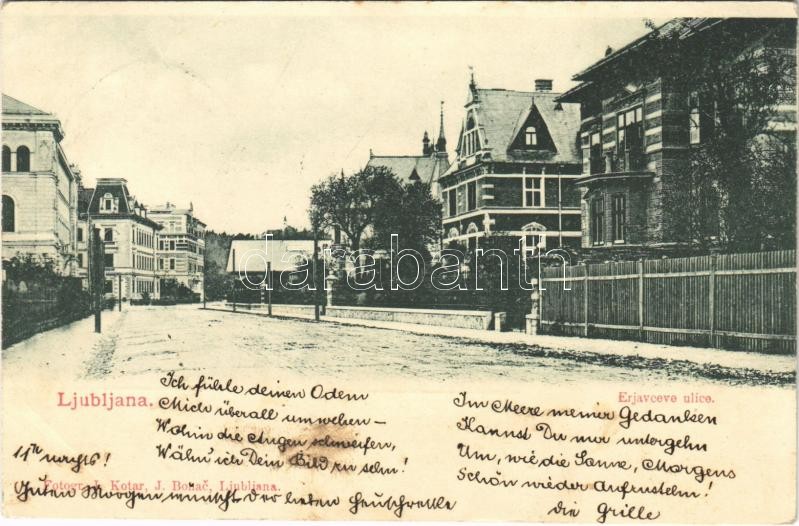 darabanth
Ljubljana.
Erjavceve ulice.
Ich fühle deinen Odem
Mich überall umwehen –
Wohin die Augen schweifen,
Wähn' ich Dein Bild zu sehn!
Im Meere meiner Gedanken
Kannst Du nur untergehn
Um, wie die Sonne, Morgens
Schön wieder Aufzustehn!
die Grille
11th nachts!
Fotogr. J. Kotar, J. Bonač, Ljubljana.
Guten Morgen wünscht der lieben Heuschrecke